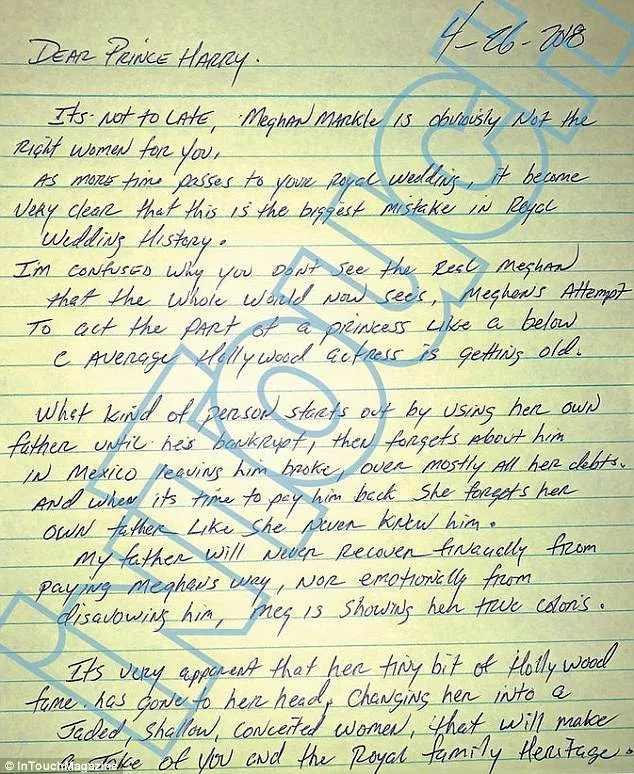 4-26-2018
DEAR PRINCE HARRY.
Its. NOT TO LATE, Meghan MARKle is obviously Not the
Right women for you,
As more time passes to your Royal Wedding, it become
very clear that this is the biggest mistake in Royal
Wedding History.
I'm CONFUSED why you DON't See the Real Meghan
that the whole world Now sees, Meghan's Attempt
To act the PART of a princess Like a below
C AVERAge Hollywood actress is getting old.
What kind of person starts out by using her own
father until he's bankrupt, then forgets About him
IN Mexico leaving him broke, over mostly All her debts.
And when its time to pay him back She forgets her
OWN father Like She Never Knew him.
My father will Never Recover finacally from
paying Meghans way, Nor emotionally from
disavowing him, Meg is Showing her true colors.
It's very apparent that her tiny bit of Hollywood
fame has gone to her head, Changing her into a
Jaded, Shallow, conceited women, that will make
a Joke of you and the Royal family Heritage.
INTOUCH
© InTouchMagazine